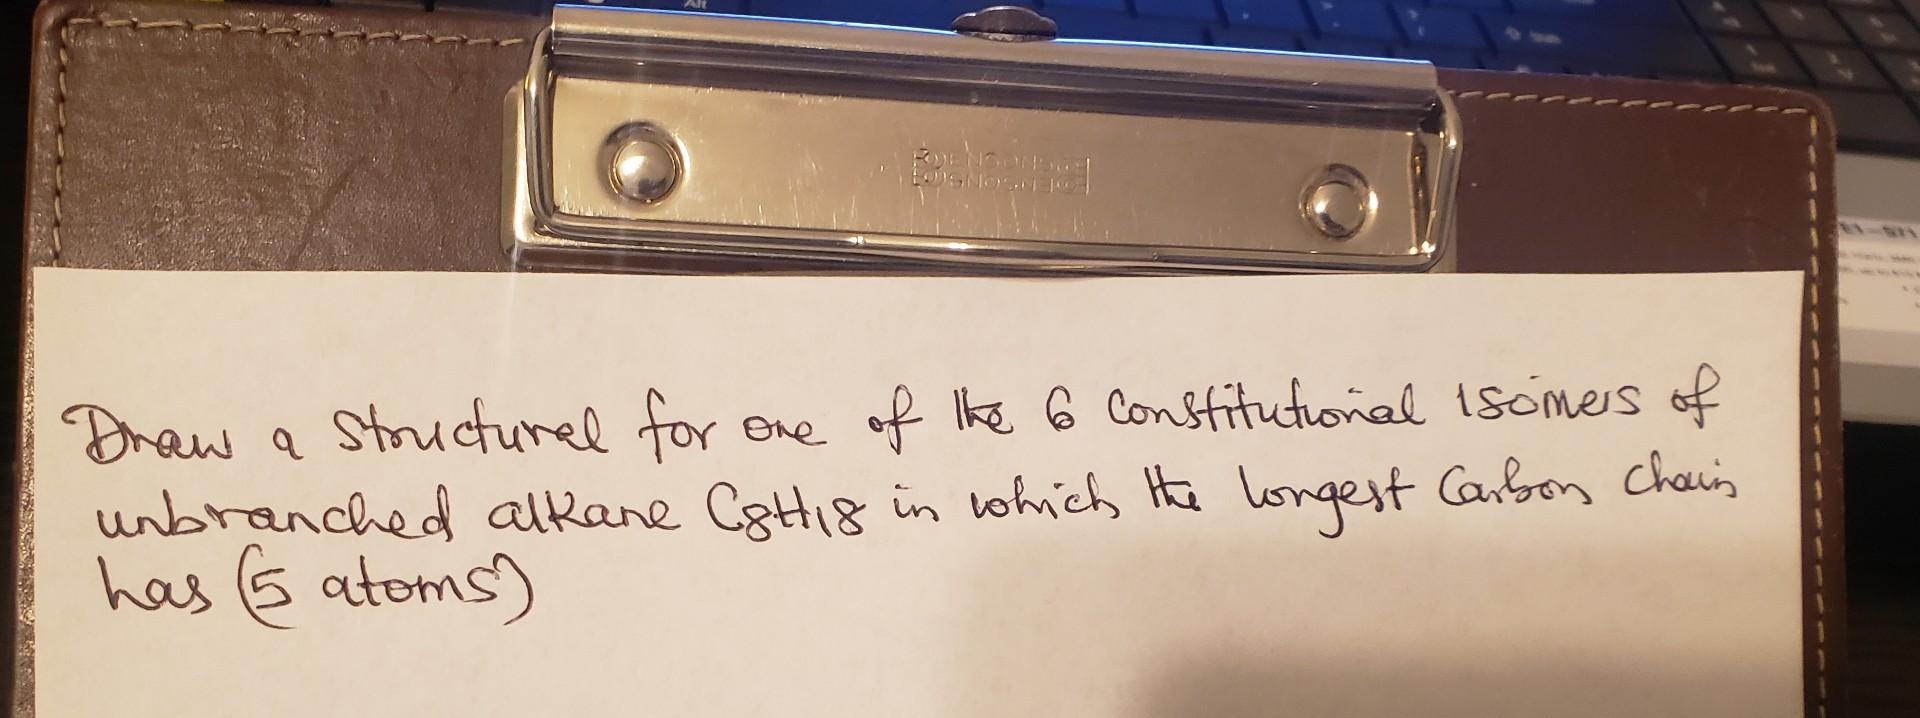 Alt
Draw a structural for one of the 6 constitutional isomers of
unbranched alkane C8H18 in which the longest Carbon chain
has (5 atoms)